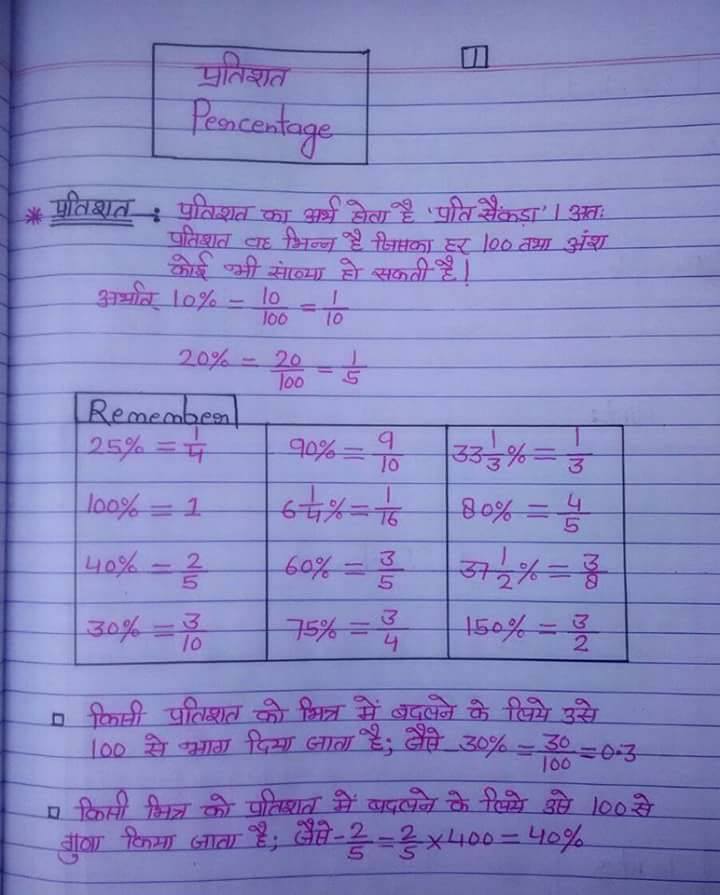 1
प्रतिशत
Percentage
* प्रतिशत : प्रतिशत का अर्थ होता है 'प्रति सैंकड़ा' । अतः
प्रतिशत वह भिन्न है जिसका हर 100 तथा अंश
कोई भी संख्या हो सकती है!
अर्थात् 10% = 10/100 = 1/10
20% = 20/100 = 1/5
Remember
25% = 1/4 90% = 9/10 33 1/3% = 1/3
100% = 1 6 1/4% = 1/16 80% = 4/5
40% = 2/5 60% = 3/5 37 1/2% = 3/8
30% = 3/10 75% = 3/4 150% = 3/2
□ किसी प्रतिशत को भिन्न में बदलने के लिये उसे
100 से भाग दिया जाता है; जैसे 30% = 30/100 = 0.3
□ किसी भिन्न को प्रतिशत में बदलने के लिये उसे 100 से
गुणा किया जाता है; जैसे - 2/5 = 2/5 × 400 = 40%